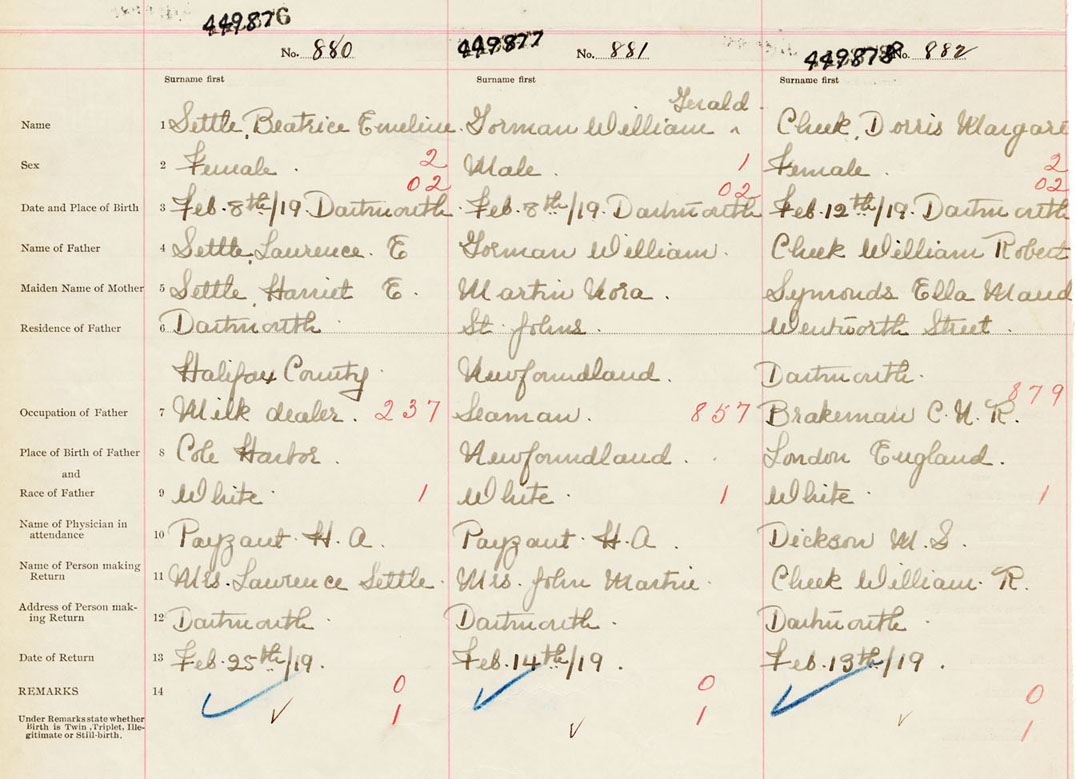 449876 449877 449878
No. 880 No. 881 No. 882
Surname first Surname first Surname first
Gerald.
Name 1 Settle, Beatrice Emeline. Gorman William ^ Cheek, Dorris Margare
Sex 2 Female. 2 Male. 1 Female. 2
02 02 02
Date and Place of Birth 3 Feb. 8th/19. Dartmouth Feb. 8th/19. Dartmouth Feb. 12th/19. Dartmouth
Name of Father 4 Settle, Laurence. E Gorman William. Cheek William Robert
Maiden Name of Mother 5 Settle, Harriet E. Martin Nora. Symonds Ella Maud
Residence of Father 6 Dartmouth St. Johns. Wentworth Street.
Halifax County. Newfoundland. Dartmouth.
Occupation of Father 7 Milk dealer. 237 Seaman. 857 Brakeman C. N. R. 879
Place of Birth of Father 8 Cole Harbor. Newfoundland. London England.
and
Race of Father 9 White 1 White 1 White 1
Name of Physician in
attendance 10 Payzant. H. A. Payzant. H. A. Dickson M. S.
Name of Person making
Return 11 Mrs. Lawrence Settle. Mrs. John Martin. Cheek William. R.
Address of Person mak-
ing Return 12 Dartmouth. Dartmouth. Dartmouth.
Date of Return 13 Feb. 25th/19. Feb. 14th/19. Feb. 13th/19.
REMARKS 14 0 0 0
Under Remarks state whether
Birth is Twin, Triplet, Ille-
gitimate or Still-birth. 1 1 1